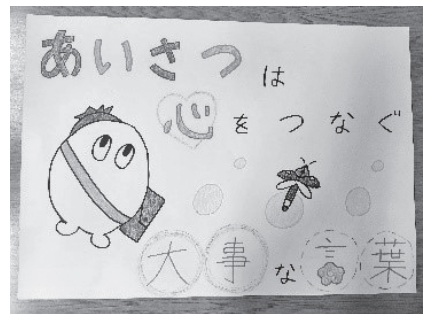 あいさつは
心をつなぐ
大事な言葉